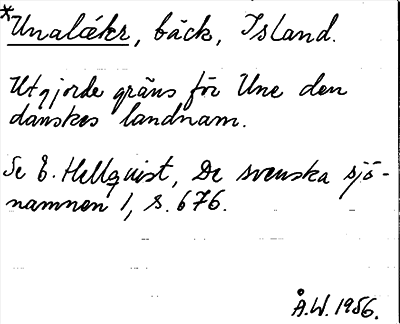 *Unalækr, bäck, Island.
Utgjorde gräns för Une den
danskes landnam.
Se E. Hellquist, De svenska sjö-
namnen 1, s. 676.
Å.W. 1956.